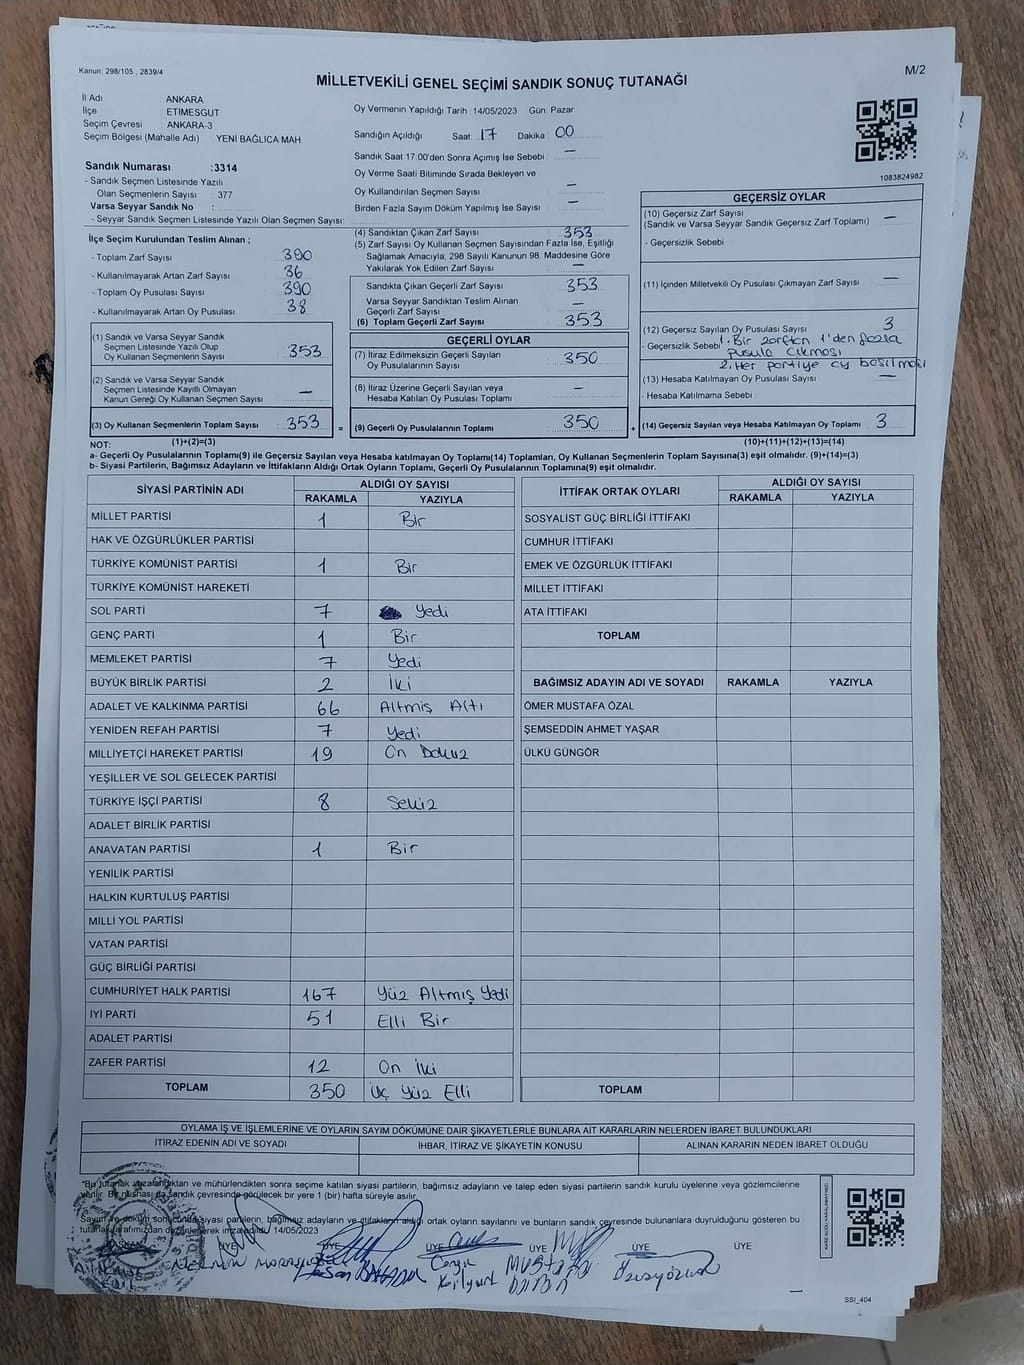 Kanun: 298/105 , 2839/4
M/2
MİLLETVEKİLİ GENEL SEÇİMİ SANDIK SONUÇ TUTANAĞI
İl Adı : ANKARA
İlçe : ETİMESGUT
Seçim Çevresi : ANKARA-3
Seçim Bölgesi (Mahalle Adı) YENİ BAĞLICA MAH.
Sandık Numarası :3314
- Sandık Seçmen Listesinde Yazılı
Olan Seçmenlerin Sayısı : 377
Varsa Seyyar Sandık No :
- Seyyar Sandık Seçmen Listesinde Yazılı Olan Seçmen Sayısı:
Oy Vermenin Yapıldığı Tarih : 14/05/2023 Gün: Pazar
Sandığın Açıldığı Saat: 17 Dakika : 00
Sandık Saat 17:00'den Sonra Açımış İse Sebebi : —
Oy Verme Saati Bitiminde Sırada Bekleyen ve
Oy Kullandırılan Seçmen Sayısı : —
Birden Fazla Sayım Döküm Yapılmış İse Sayısı : —
1083824982
İlçe Seçim Kurulundan Teslim Alınan ;
- Toplam Zarf Sayısı : 390
- Kullanılmayarak Artan Zarf Sayısı : 36
- Toplam Oy Pusulası Sayısı : 390
- Kullanılmayarak Artan Oy Pusulası : 38
(1) Sandık ve Varsa Seyyar Sandık
Seçmen Listesinde Yazılı Olup
Oy Kullanan Seçmenlerin Sayısı : 353
(2) Sandık ve Varsa Seyyar Sandık
Seçmen Listesinde Kayıtlı Olmayan
Kanun Gereği Oy Kullanan Seçmen Sayısı : —
(3) Oy Kullanan Seçmenlerin Toplam Sayısı : 353
(4) Sandıktan Çıkan Zarf Sayısı : 353
(5) Zarf Sayısı Oy Kullanan Seçmen Sayısından Fazla İse, Eşitliği
Sağlamak Amacıyla; 298 Sayılı Kanunun 98. Maddesine Göre
Yakılarak Yok Edilen Zarf Sayısı : —
Sandıkta Çıkan Geçerli Zarf Sayısı : 353
Varsa Seyyar Sandıktan Teslim Alınan
Geçerli Zarf Sayısı : —
(6) Toplam Geçerli Zarf Sayısı : 353
GEÇERLİ OYLAR
(7) İtiraz Edilmeksizin Geçerli Sayılan
Oy Pusulalarının Sayısı : 350
(8) İtiraz Üzerine Geçerli Sayılan veya
Hesaba Katılan Oy Pusulası Toplamı : —
= (9) Geçerli Oy Pusulalarının Toplamı : 350
GEÇERSİZ OYLAR
(10) Geçersiz Zarf Sayısı
(Sandık ve Varsa Seyyar Sandık Geçersiz Zarf Toplamı) : —
- Geçersizlik Sebebi :
(11) İçinden Milletvekili Oy Pusulası Çıkmayan Zarf Sayısı : —
(12) Geçersiz Sayılan Oy Pusulası Sayısı : 3
- Geçersizlik Sebebi 1. Bir zarftan 1'den fazla
pusula çıkması
2. Her partiye oy basılması
(13) Hesaba Katılmayan Oy Pusulası Sayısı : —
- Hesaba Katılmama Sebebi :
+ (14) Geçersiz Sayılan veya Hesaba Katılmayan Oy Toplamı : 3
NOT: (1)+(2)=(3) (10)+(11)+(12)+(13)=(14)
a- Geçerli Oy Pusulalarının Toplamı(9) ile Geçersiz Sayılan veya Hesaba katılmayan Oy Toplamı(14) Toplamları, Oy Kullanan Seçmenlerin Toplam Sayısına(3) eşit olmalıdır. (9)+(14)=(3)
b- Siyasi Partilerin, Bağımsız Adayların ve İttifakların Aldığı Ortak Oyların Toplamı, Geçerli Oy Pusulalarının Toplamına(9) eşit olmalıdır.
SİYASİ PARTİNİN ADI ALDIĞI OY SAYISI
RAKAMLA YAZIYLA
MİLLET PARTİSİ 1 Bir
HAK VE ÖZGÜRLÜKLER PARTİSİ
TÜRKİYE KOMÜNİST PARTİSİ 1 Bir
TÜRKİYE KOMÜNİST HAREKETİ
SOL PARTİ 7 Yedi
GENÇ PARTİ 1 Bir
MEMLEKET PARTİSİ 7 Yedi
BÜYÜK BİRLİK PARTİSİ 2 İki
ADALET VE KALKINMA PARTİSİ 66 Altmış Altı
YENİDEN REFAH PARTİSİ 7 Yedi
MİLLİYETÇİ HAREKET PARTİSİ 19 On Dokuz
YEŞİLLER VE SOL GELECEK PARTİSİ
TÜRKİYE İŞÇİ PARTİSİ 8 Sekiz
ADALET BİRLİK PARTİSİ
ANAVATAN PARTİSİ 1 Bir
YENİLİK PARTİSİ
HALKIN KURTULUŞ PARTİSİ
MİLLİ YOL PARTİSİ
VATAN PARTİSİ
GÜÇ BİRLİĞİ PARTİSİ
CUMHURİYET HALK PARTİSİ 167 Yüz Altmış Yedi
İYİ PARTİ 51 Elli Bir
ADALET PARTİSİ
ZAFER PARTİSİ 12 On İki
TOPLAM 350 Üç Yüz Elli
İTTİFAK ORTAK OYLARI ALDIĞI OY SAYISI
RAKAMLA YAZIYLA
SOSYALİST GÜÇ BİRLİĞİ İTTİFAKI
CUMHUR İTTİFAKI
EMEK VE ÖZGÜRLÜK İTTİFAKI
MİLLET İTTİFAKI
ATA İTTİFAKI
TOPLAM
BAĞIMSIZ ADAYIN ADI VE SOYADI RAKAMLA YAZIYLA
ÖMER MUSTAFA ÖZAL
ŞEMSEDDİN AHMET YAŞAR
ÜLKÜ GÜNGÖR
TOPLAM
OYLAMA İŞ VE İŞLEMLERİNE VE OYLARIN SAYIM DÖKÜMÜNE DAİR ŞİKAYETLERLE BUNLARA AİT KARARLARIN NELERDEN İBARET BULUNDUKLARI
İTİRAZ EDENİN ADI VE SOYADI İHBAR, İTİRAZ VE ŞİKAYETİN KONUSU ALINAN KARARIN NEDEN İBARET OLDUĞU
*Bu tutanak imzalandıktan ve mühürlendikten sonra seçime katılan siyasi partilerin, bağımsız adayların ve talep eden siyasi partilerin sandık kurulu üyelerine veya gözlemcilerine
verilir. Bir nüshası da sandık çevresinde görülecek bir yere 1 (bir) hafta süreyle asılır.
Sayım ve döküm sonucunda siyasi partilerin, bağımsız adayların ve ittifakların aldığı ortak oyların sayılarını ve bunların sandık çevresinde bulunanlara duyrulduğunu gösteren bu
tutanak tarafımızdan düzenlenerek imzalandı. 14/05/2023
BAŞKAN ÜYE ÜYE ÜYE ÜYE ÜYE ÜYE
SSI_404